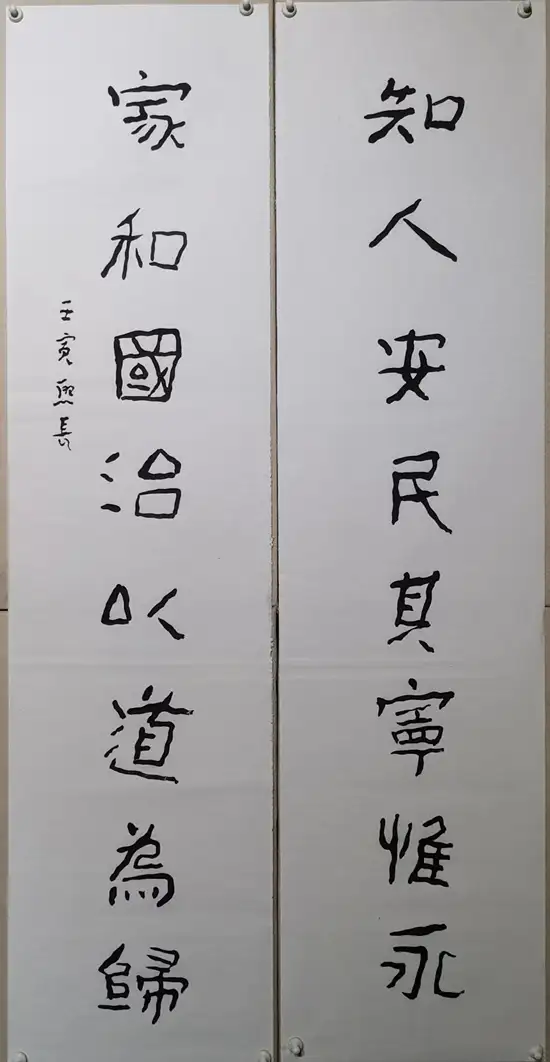 知人安民其寧惟永
家和國治以道為歸
壬寅熙長